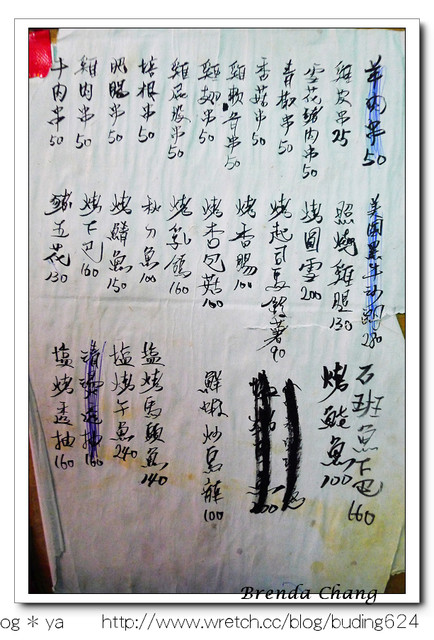 羊肉串50
雞皮串25
雪花豬肉串50
青椒串50
香菇串50
雞軟骨串50
雞翅串50
雞屁股串50
培根串50
肥腸串50
雞肉串50
牛肉串50
美國黑牛小排230
照燒雞腿130
烤圓雪200
烤起司馬鈴薯90
烤香腸100
烤杏包菇100
烤乳鴿160
秋刀魚100
烤鯖魚150
烤下巴160
豬五花130
石班魚下巴160
烤鮭魚100
200
鮮蚵炒烏龍100
鹽烤馬頭魚140
塩烤午魚240
160
塩烤透抽160
Brenda Chang
og * ya http://www.wretch.cc/blog/buding624